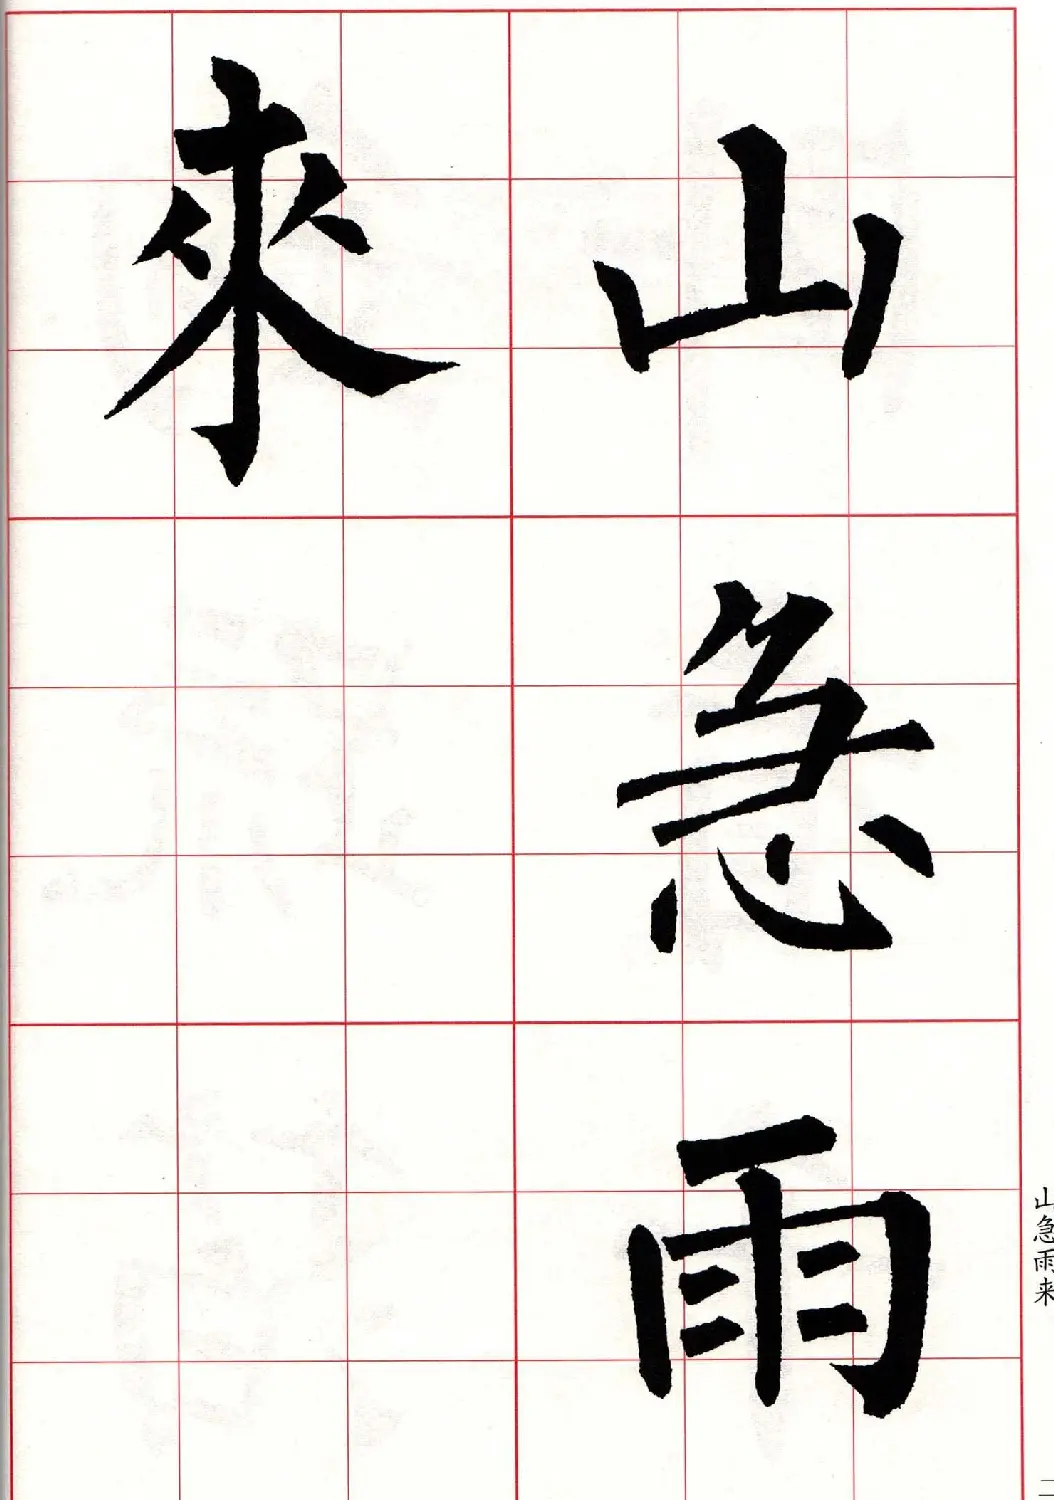 山急雨
來
山急雨来
二